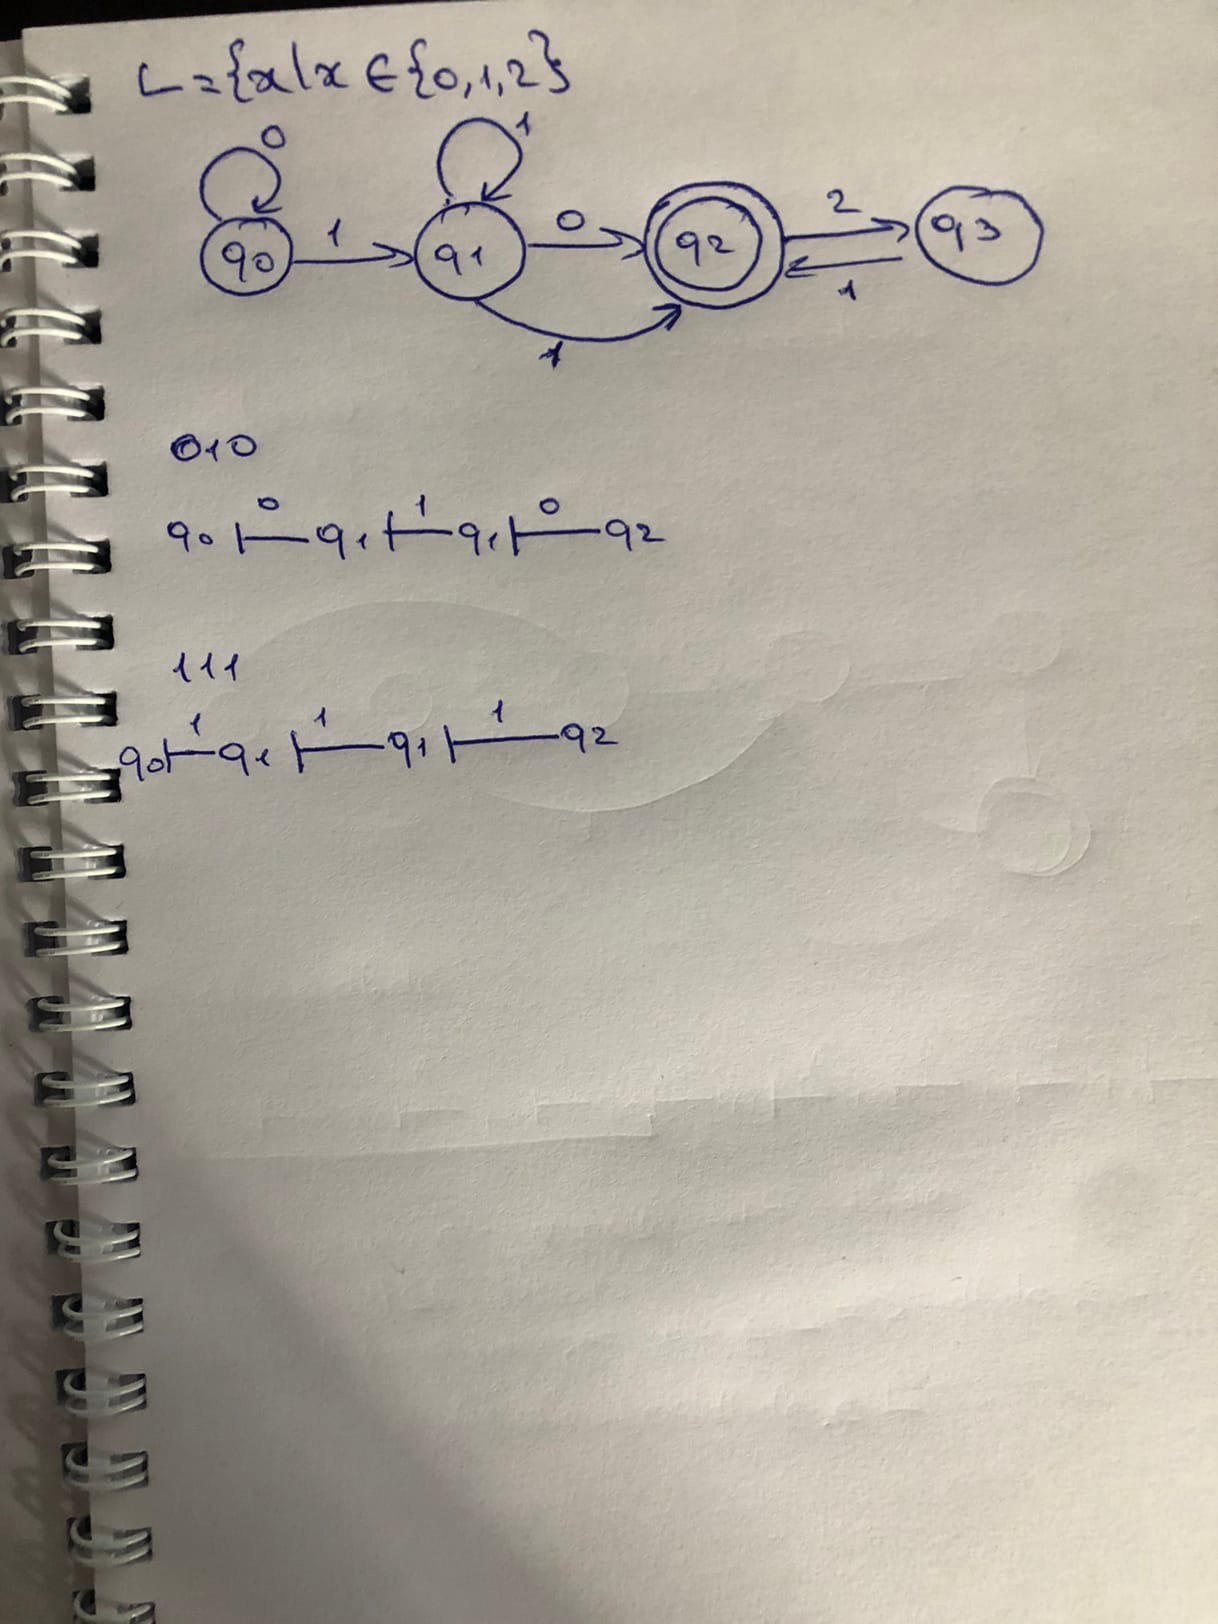 L = {x | x ∈ {0,1,2}
0 1
q0 1 q1 0 q2 2 q3
1 1
010
q0 |0— q1 |1— q1 |0— q2
111
q0 |1— q1 |1— q1 |1— q2